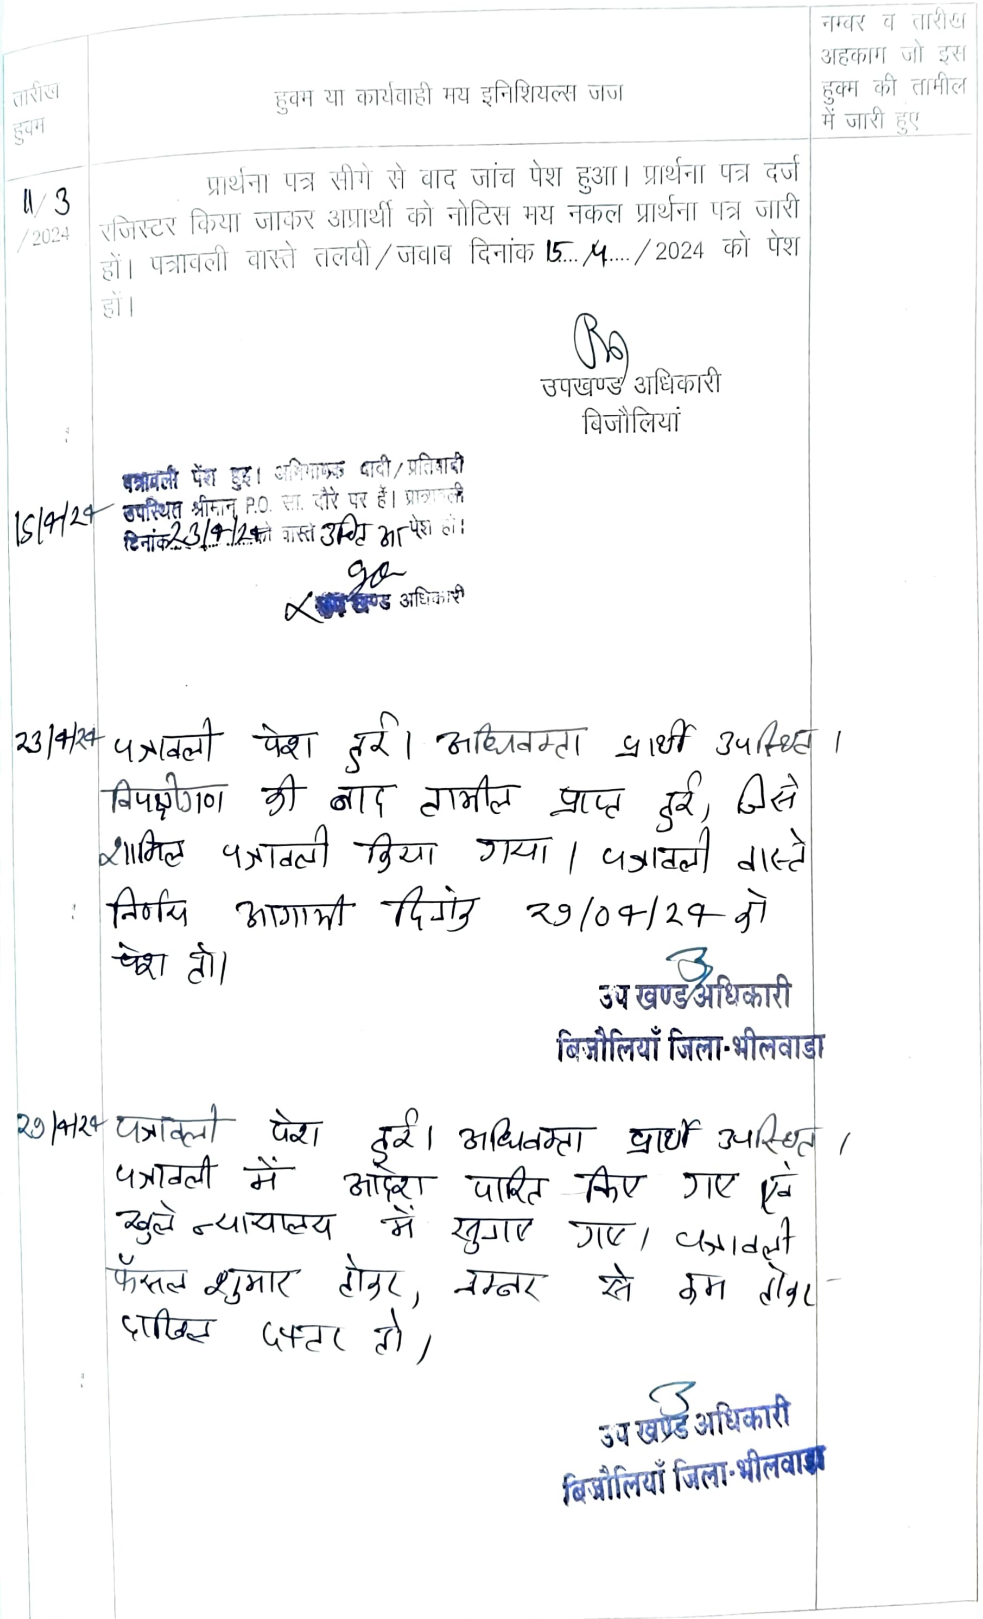 नम्बर व तारीख
अहकाम जो इस
हुक्म की तामील
में जारी हुए
तारीख
हुक्म
हुक्म या कार्यवाही मय इनिशियल्स जज
11/3
/2024
प्रार्थना पत्र सीगे से वाद जांच पेश हुआ। प्रार्थना पत्र दर्ज
रजिस्टर किया जाकर अप्रार्थी को नोटिस मय नकल प्रार्थना पत्र जारी
हों। पत्रावली वास्ते तलवी/जवाब दिनांक 15.../4..../2024 को पेश
हों।
उपखण्ड अधिकारी
बिजौलियां
15/4/24
पत्रावली पेंश हुइ। अभिभाषक वादी/प्रतिवादी
उपस्थित श्रीमान् P.O. सा. दौरे पर हैं। पत्रावली
दिनांक 23/4/24 को वास्ते पेश हो।
उप खण्ड अधिकारी
23/4/24 पत्रावली पेश हुई। अधिवक्ता प्रार्थी उपस्थित।
विपक्षीगण की बाद तामील प्राप्त हुई, जिसे
शामिल पत्रावली किया गया। पत्रावली वास्ते
निर्णय आगामी दिनांक 29/04/24 को
पेश हो।
उप खण्ड अधिकारी
बिजौलियाँ जिला-भीलवाडा
29/4/24 पत्रावली पेश हुई। अधिवक्ता प्रार्थी उपस्थित।
पत्रावली में आदेश पारित किए गए एवं
खुले न्यायालय में सुनाए गए। पत्रावली
फैसल शुमार होकर, नम्बर से कम होकर
दाखिल दफ्तर हो।
उप खण्ड अधिकारी
बिजौलियाँ जिला-भीलवाडा